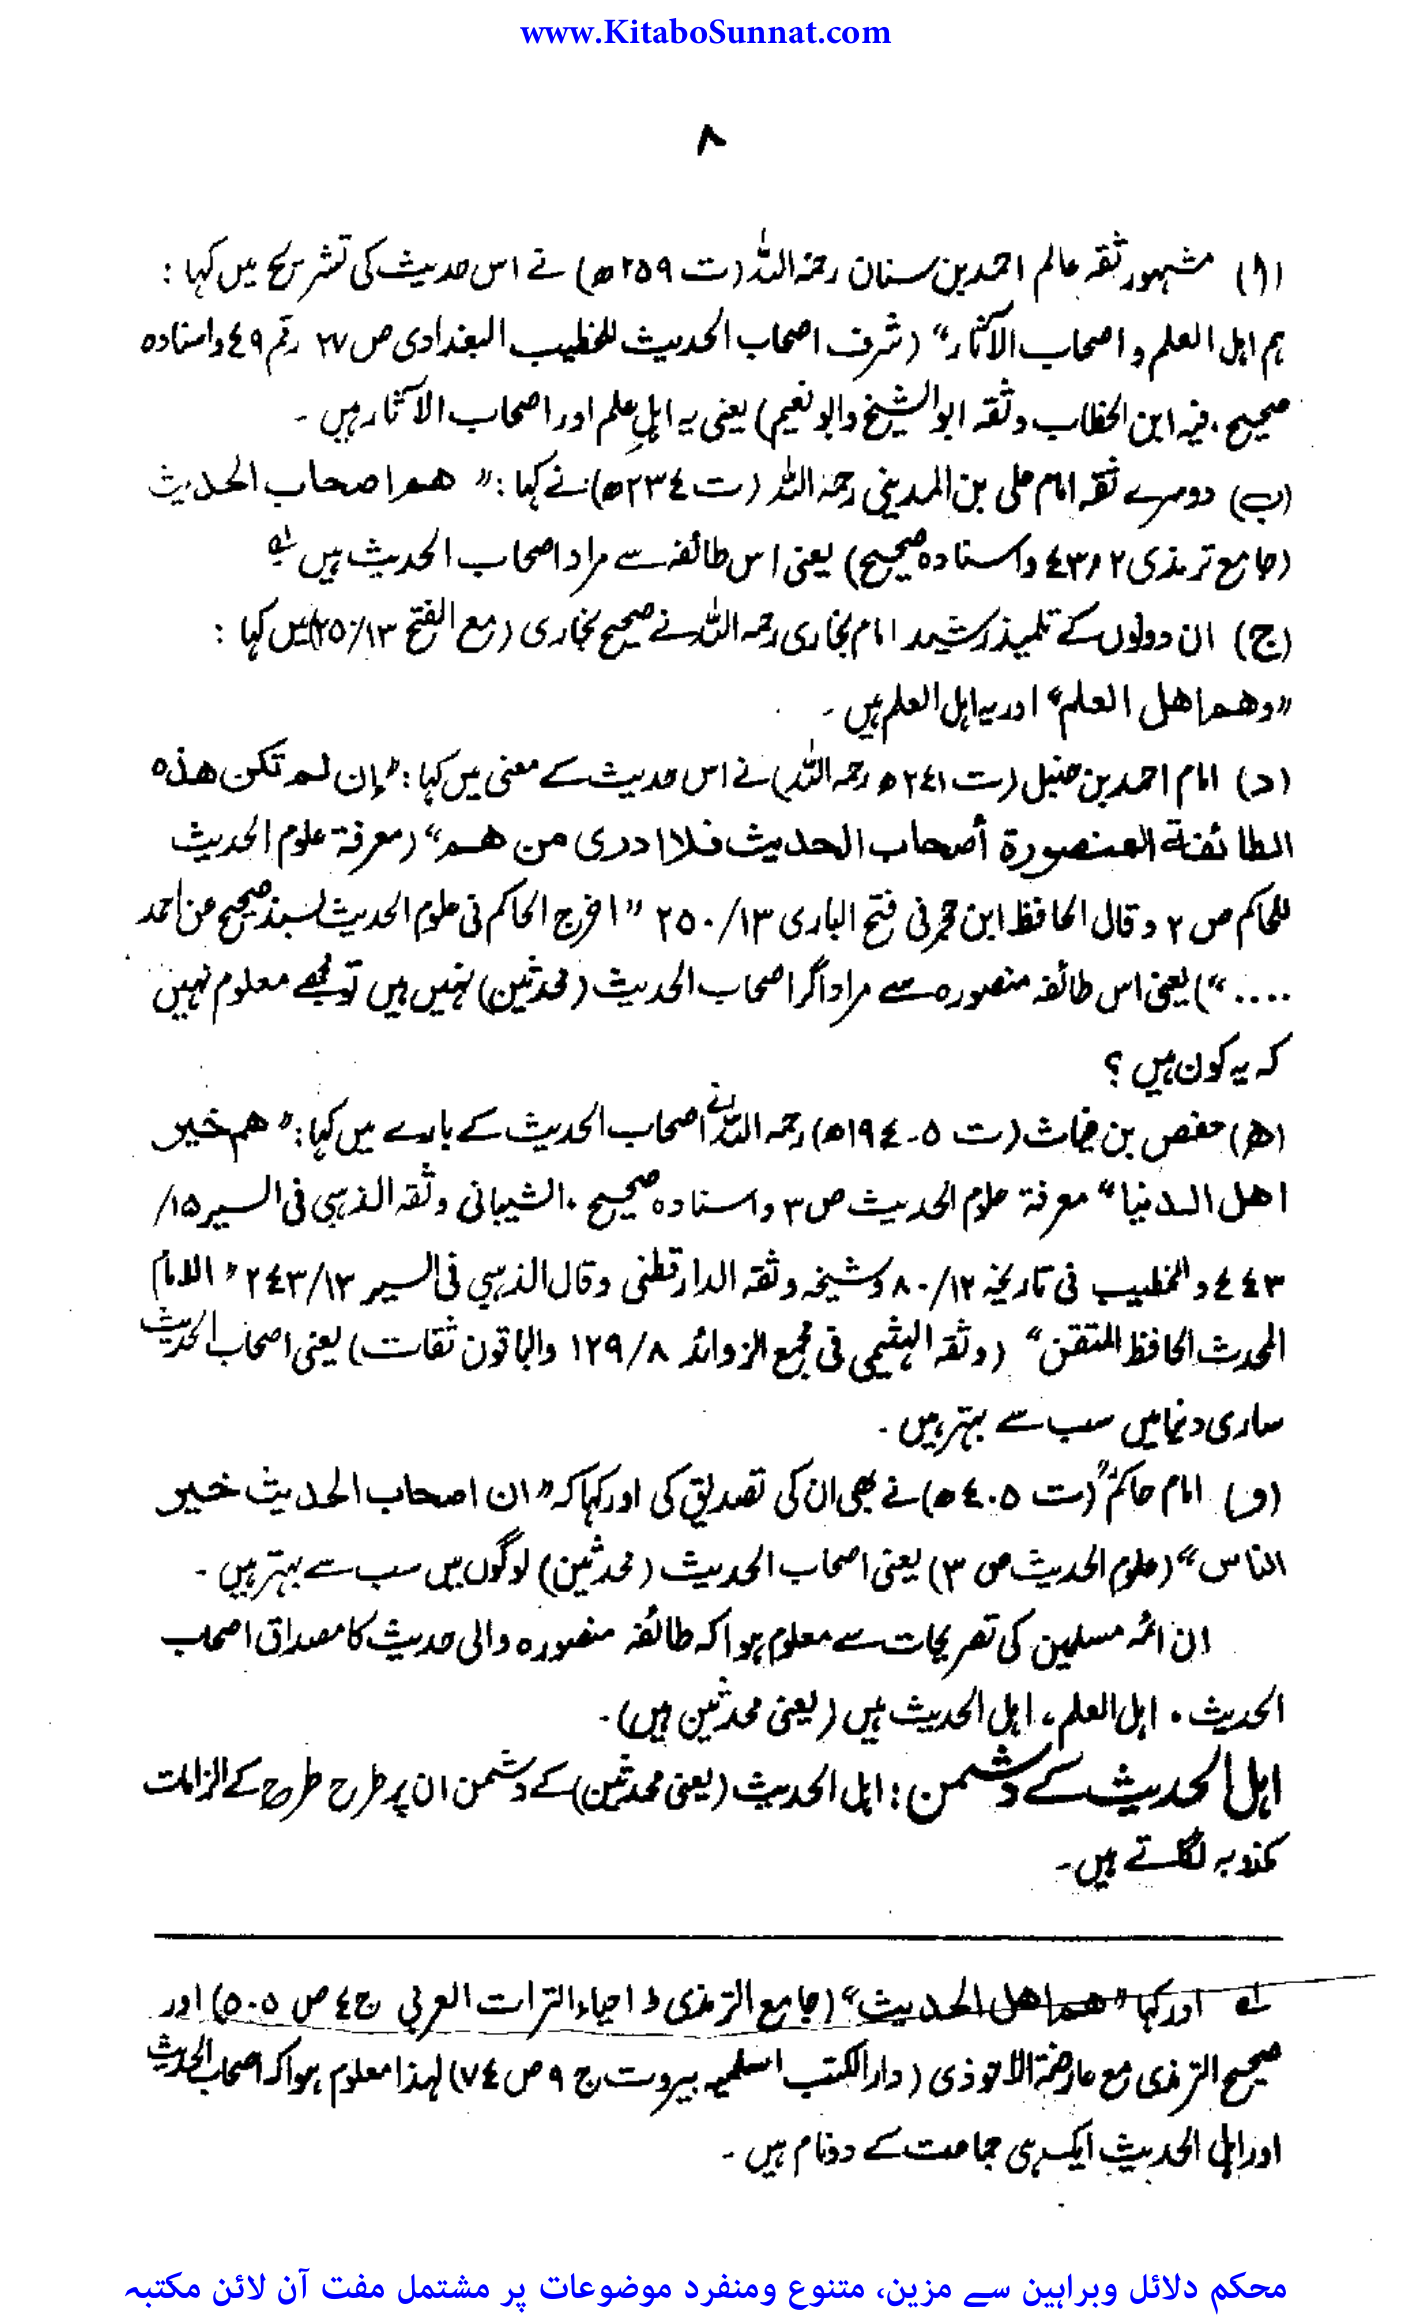 www.KitaboSunnat.com
۸
(ا) مشہور ثقہ عالم احمد بن سنان رحمہ اللہ (ت ۲۵۹ھ) نے اس حدیث کی تشریح میں کہا :
ہم اہل العلم و اصحاب الآثار“ (شرف اصحاب الحدیث للخطیب البغدادی ص ۲۷ رقم ٤۹ و اسنادہ
صحیح ، فیہ ابن الخطاب وثقہ ابو الشیخ و ابو نعیم) یعنی یہ اہلِ علم اور اصحاب الآثار ہیں ۔
(ب) دوسرے ثقہ امام علی بن المدینی رحمہ اللہ (ت ۲۳٤ھ) نے کہا : ” ھم اصحاب الحدیث
(جامع ترمذی ٤۳/۲ و اسنادہ صحیح) یعنی اس طائفہ سے مراد اصحاب الحدیث ہیں لہ
(ج) ان دونوں کے تلمیذ رشید امام بخاری رحمہ اللہ نے صحیح بخاری (مع الفتح ۲۵۰/۱۳) میں کہا :
”وھم اھل العلم“ اور یہ اہل العلم ہیں ۔
(د) امام احمد بن حنبل (ت ۲٤۱ھ رحمہ اللہ) نے اس حدیث کے معنی میں کہا : ”إن لم تکن ھذہ
الطائفة المنصورة أصحاب الحدیث فلا ادری من ھم“ (معرفۃ علوم الحدیث
للحاکم ص ۲ و قال الحافظ ابن حجر فی فتح الباری ۲۵۰/۱۳ ”اخرج الحاکم فی علوم الحدیث بسند صحیح عن احمد
....“) یعنی اس طائفہ منصورہ سے مراد اگر اصحاب الحدیث (محدثین) نہیں ہیں تو مجھے معلوم نہیں
کہ یہ کون ہیں ؟
(ھ) حفص بن غیاث (ت ۵-۱۹٤ھ) رحمہ اللہ نے اصحاب الحدیث کے بارے میں کہا : ” ھم خیر
اھل الدنیا“ معرفۃ علوم الحدیث ص ۳ و اسنادہ صحیح ۔ الشیبانی وثقہ الذہبی فی السیر ۱۵/
٤٤۳ و الخطیب فی تاریخہ ۸۰/۱۲ و شیخہ وثقہ الدارقطنی وقال الذہبی فی السیر ۲٤۳/۱۳ ” الامام
المحدث الحافظ المتقن“ (وثقہ الہثیمی فی مجمع الزوائد ۱۲۹/۸ والباقون ثقات) یعنی اصحاب الحدیث
ساری دنیا میں سب سے بہتر ہیں ۔
(و) امام حاکمؒ (ت ٤۰۵ھ) نے بھی ان کی تصدیق کی اور کہا کہ ” ان اصحاب الحدیث خیر
الناس“ (علوم الحدیث ص ۳) یعنی اصحاب الحدیث (محدثین) لوگوں میں سب سے بہتر ہیں ۔
ان ائمہ مسلمین کی تصریحات سے معلوم ہوا کہ طائفہ منصورہ والی حدیث کا مصداق اصحاب
الحدیث ، اہل العلم ، اہل الحدیث ہیں (یعنی محدثین ہیں) ۔
اہل الحدیث کے دشمن : اہل الحدیث (یعنی محدثین) کے دشمن ان پر طرح طرح کے الزامات
مکذوبہ لگاتے ہیں ۔
لہ اور کہا ”ھم اھل الحدیث“ (جامع الترمذی ط احیاء التراث العربی ج ٤ ص ۵۰۵) اور
صحیح الترمذی مع عارضۃ الاحوذی (دار الکتب العلمیہ بیروت ج ۹ ص ۷٤) لہذا معلوم ہوا کہ اصحاب الحدیث
اور اہل الحدیث ایک ہی جماعت کے دو نام ہیں ۔
محکم دلائل وبراہین سے مزین، متنوع ومنفرد موضوعات پر مشتمل مفت آن لائن مکتبہ